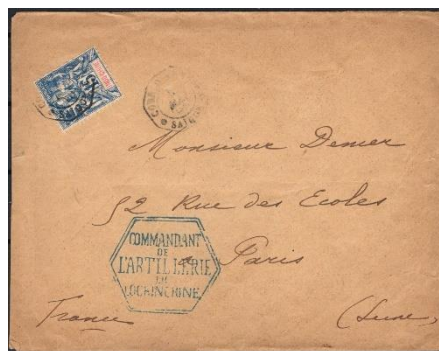 Monsieur Demer
52 Rue des Ecoles
à Paris
COMMANDANT
DE
L'ARTILLERIE
EN
COCHINCHINE
France (Seine)